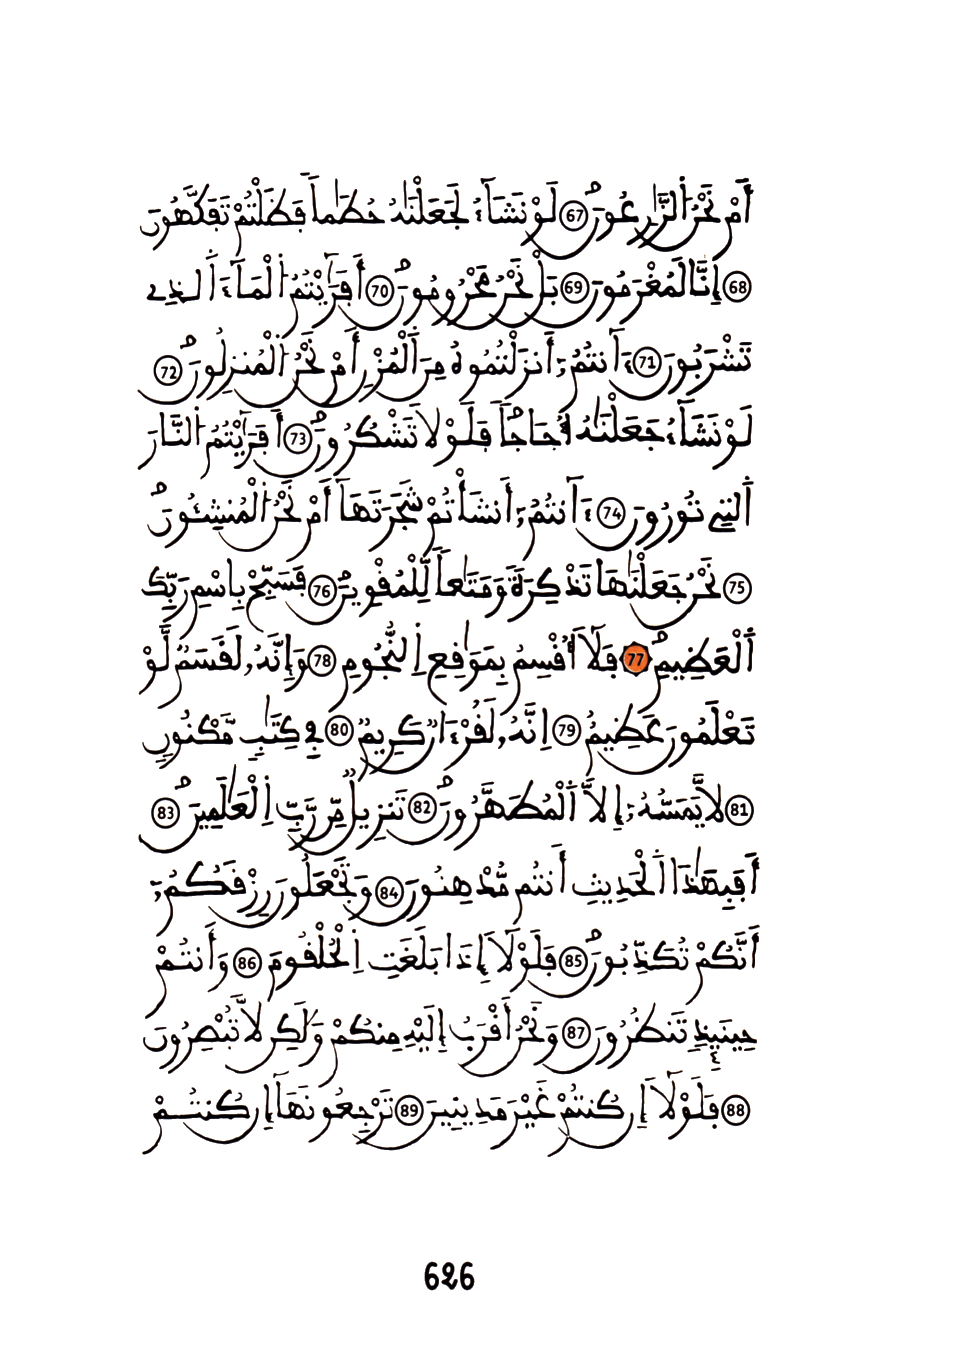 أَمْ نَحْنُ اُ۬لزَّٰرِعُونَۖ 67 لَوْ نَشَآءُ لَجَعَلْنَٰهُ حُطَٰماٗ فَظَلْتُمْ تَفَكَّهُونَ
68 إِنَّا لَمُغْرَمُونَ 69 بَلْ نَحْنُ مَحْرُومُونَۖ 70 أَفَرَٰٓيْتُمُ اُ۬لْمَآءَ اَ۬لذِے
تَشْرَبُونَ 71 ءَآنتُمُۥٓ أَنزَلْتُمُوهُ مِنَ اَ۬لْمُزْنِ أَمْ نَحْنُ اُ۬لْمُنزِلُونَۖ 72
لَوْ نَشَآءُ جَعَلْنَٰهُ أُجَاجاٗۖ فَلَوْلَا تَشْكُرُونَۖ 73 أَفَرَٰٓيْتُمُ اُ۬لنَّارَ
اَ۬لتِے تُورُونَ 74 ءَآنتُمُۥٓ أَنشَأْتُمْ شَجَرَتَهَآ أَمْ نَحْنُ اُ۬لْمُنشِـُٔونَۖ
75 نَحْنُ جَعَلْنَٰهَا تَذْكِرَةٗ وَمَتَٰعاٗ لِّلْمُقْوِينَۖ 76 فَسَبِّحْ بِاسْمِ رَبِّكَ
اَ۬لْعَظِيمِۖ 77 فَلَآ أُقْسِمُ بِمَوَٰقِعِ اِ۬لنُّجُومِ 78 وَإِنَّهُۥ لَقَسَمٞ لَّوْ
تَعْلَمُونَ عَظِيمٌۖ 79 اِنَّهُۥ لَقُرْءَانٞ كَرِيمٞ 80 فِے كِتَٰبٖ مَّكْنُونٖ
81 لَّا يَمَسُّهُۥٓ إِلَّا اَ۬لْمُطَهَّرُونَۖ 82 تَنزِيلٞ مِّن رَّبِّ اِ۬لْعَٰلَمِينَۖ 83
أَفَبِهَٰذَا اَ۬لْحَدِيثِ أَنتُم مُّدْهِنُونَ 84 وَتَجْعَلُونَ رِزْقَكُمُۥٓ
أَنَّكُمْ تُكَذِّبُونَۖ 85 فَلَوْلَآ إِذَا بَلَغَتِ اِ۬لْحُلْقُومَ 86 وَأَنتُمْ
حِينَئِذٖ تَنظُرُونَ 87 وَنَحْنُ أَقْرَبُ إِلَيْهِ مِنكُمْ وَلَٰكِن لَّا تُبْصِرُونَ
88 فَلَوْلَآ إِن كُنتُمْ غَيْرَ مَدِينِينَ 89 تَرْجِعُونَهَآ إِن كُنتُمْ
626